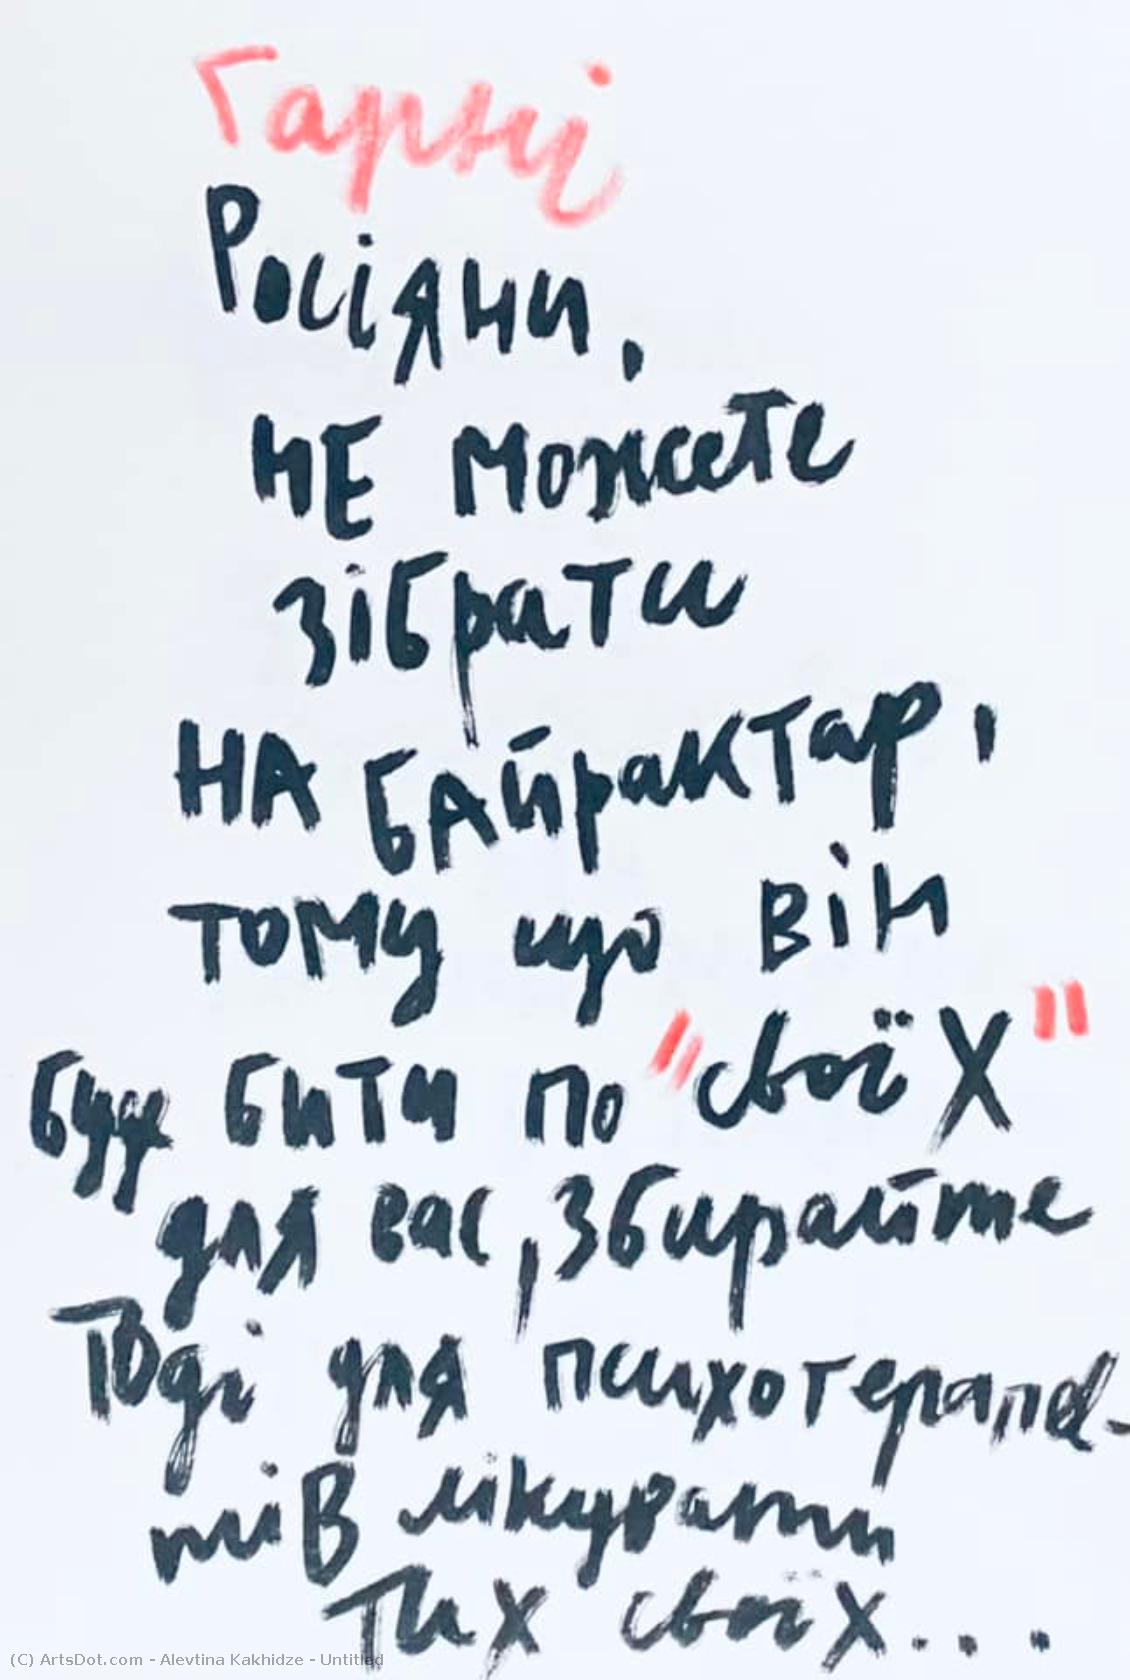 Гарні
Росіяни,
НЕ можете
зібрати
НА байрактар,
тому що він
буде бити по "своїх"
для вас, збирайте
Тоді для психотерапев-
тів лікувати
Тих своїх...
(C) ArtsDot.com - Alevtina Kakhidze - Untitled